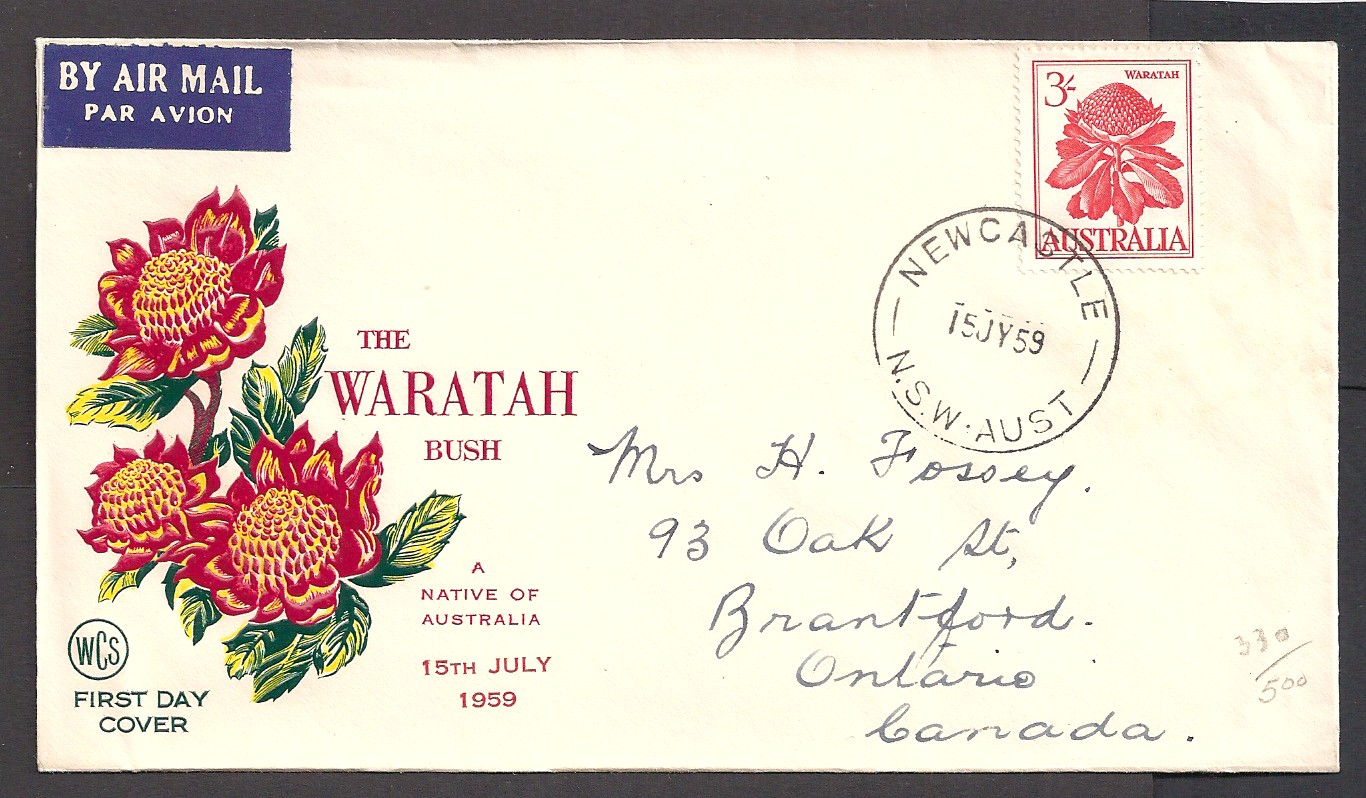 BY AIR MAIL
PAR AVION
3/-
WARATAH
AUSTRALIA
NEWCASTLE
15JY59
N.S.W·AUST
THE
WARATAH
BUSH
A
NATIVE OF
AUSTRALIA
15TH JULY
1959
WCS
FIRST DAY
COVER
Mrs H. Fossey.
93 Oak St,
Brantford.
Ontario
Canada.
330
500